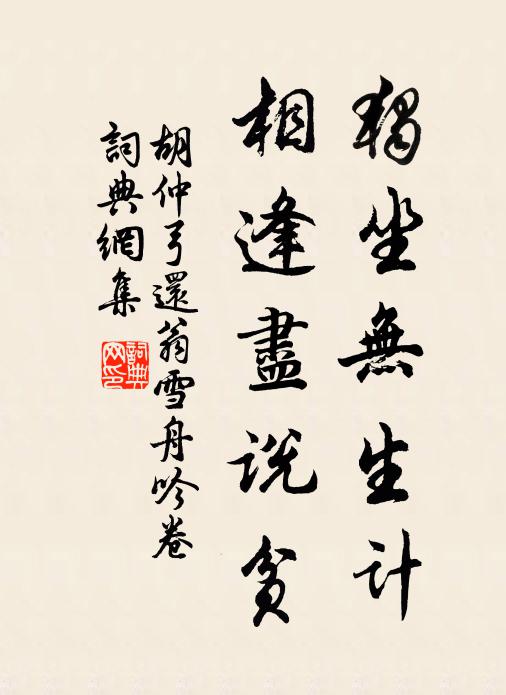 獨坐無生計
相逢盡説貧
胡仲弓還翁雪舟吟卷
詞典網集
詞典网印